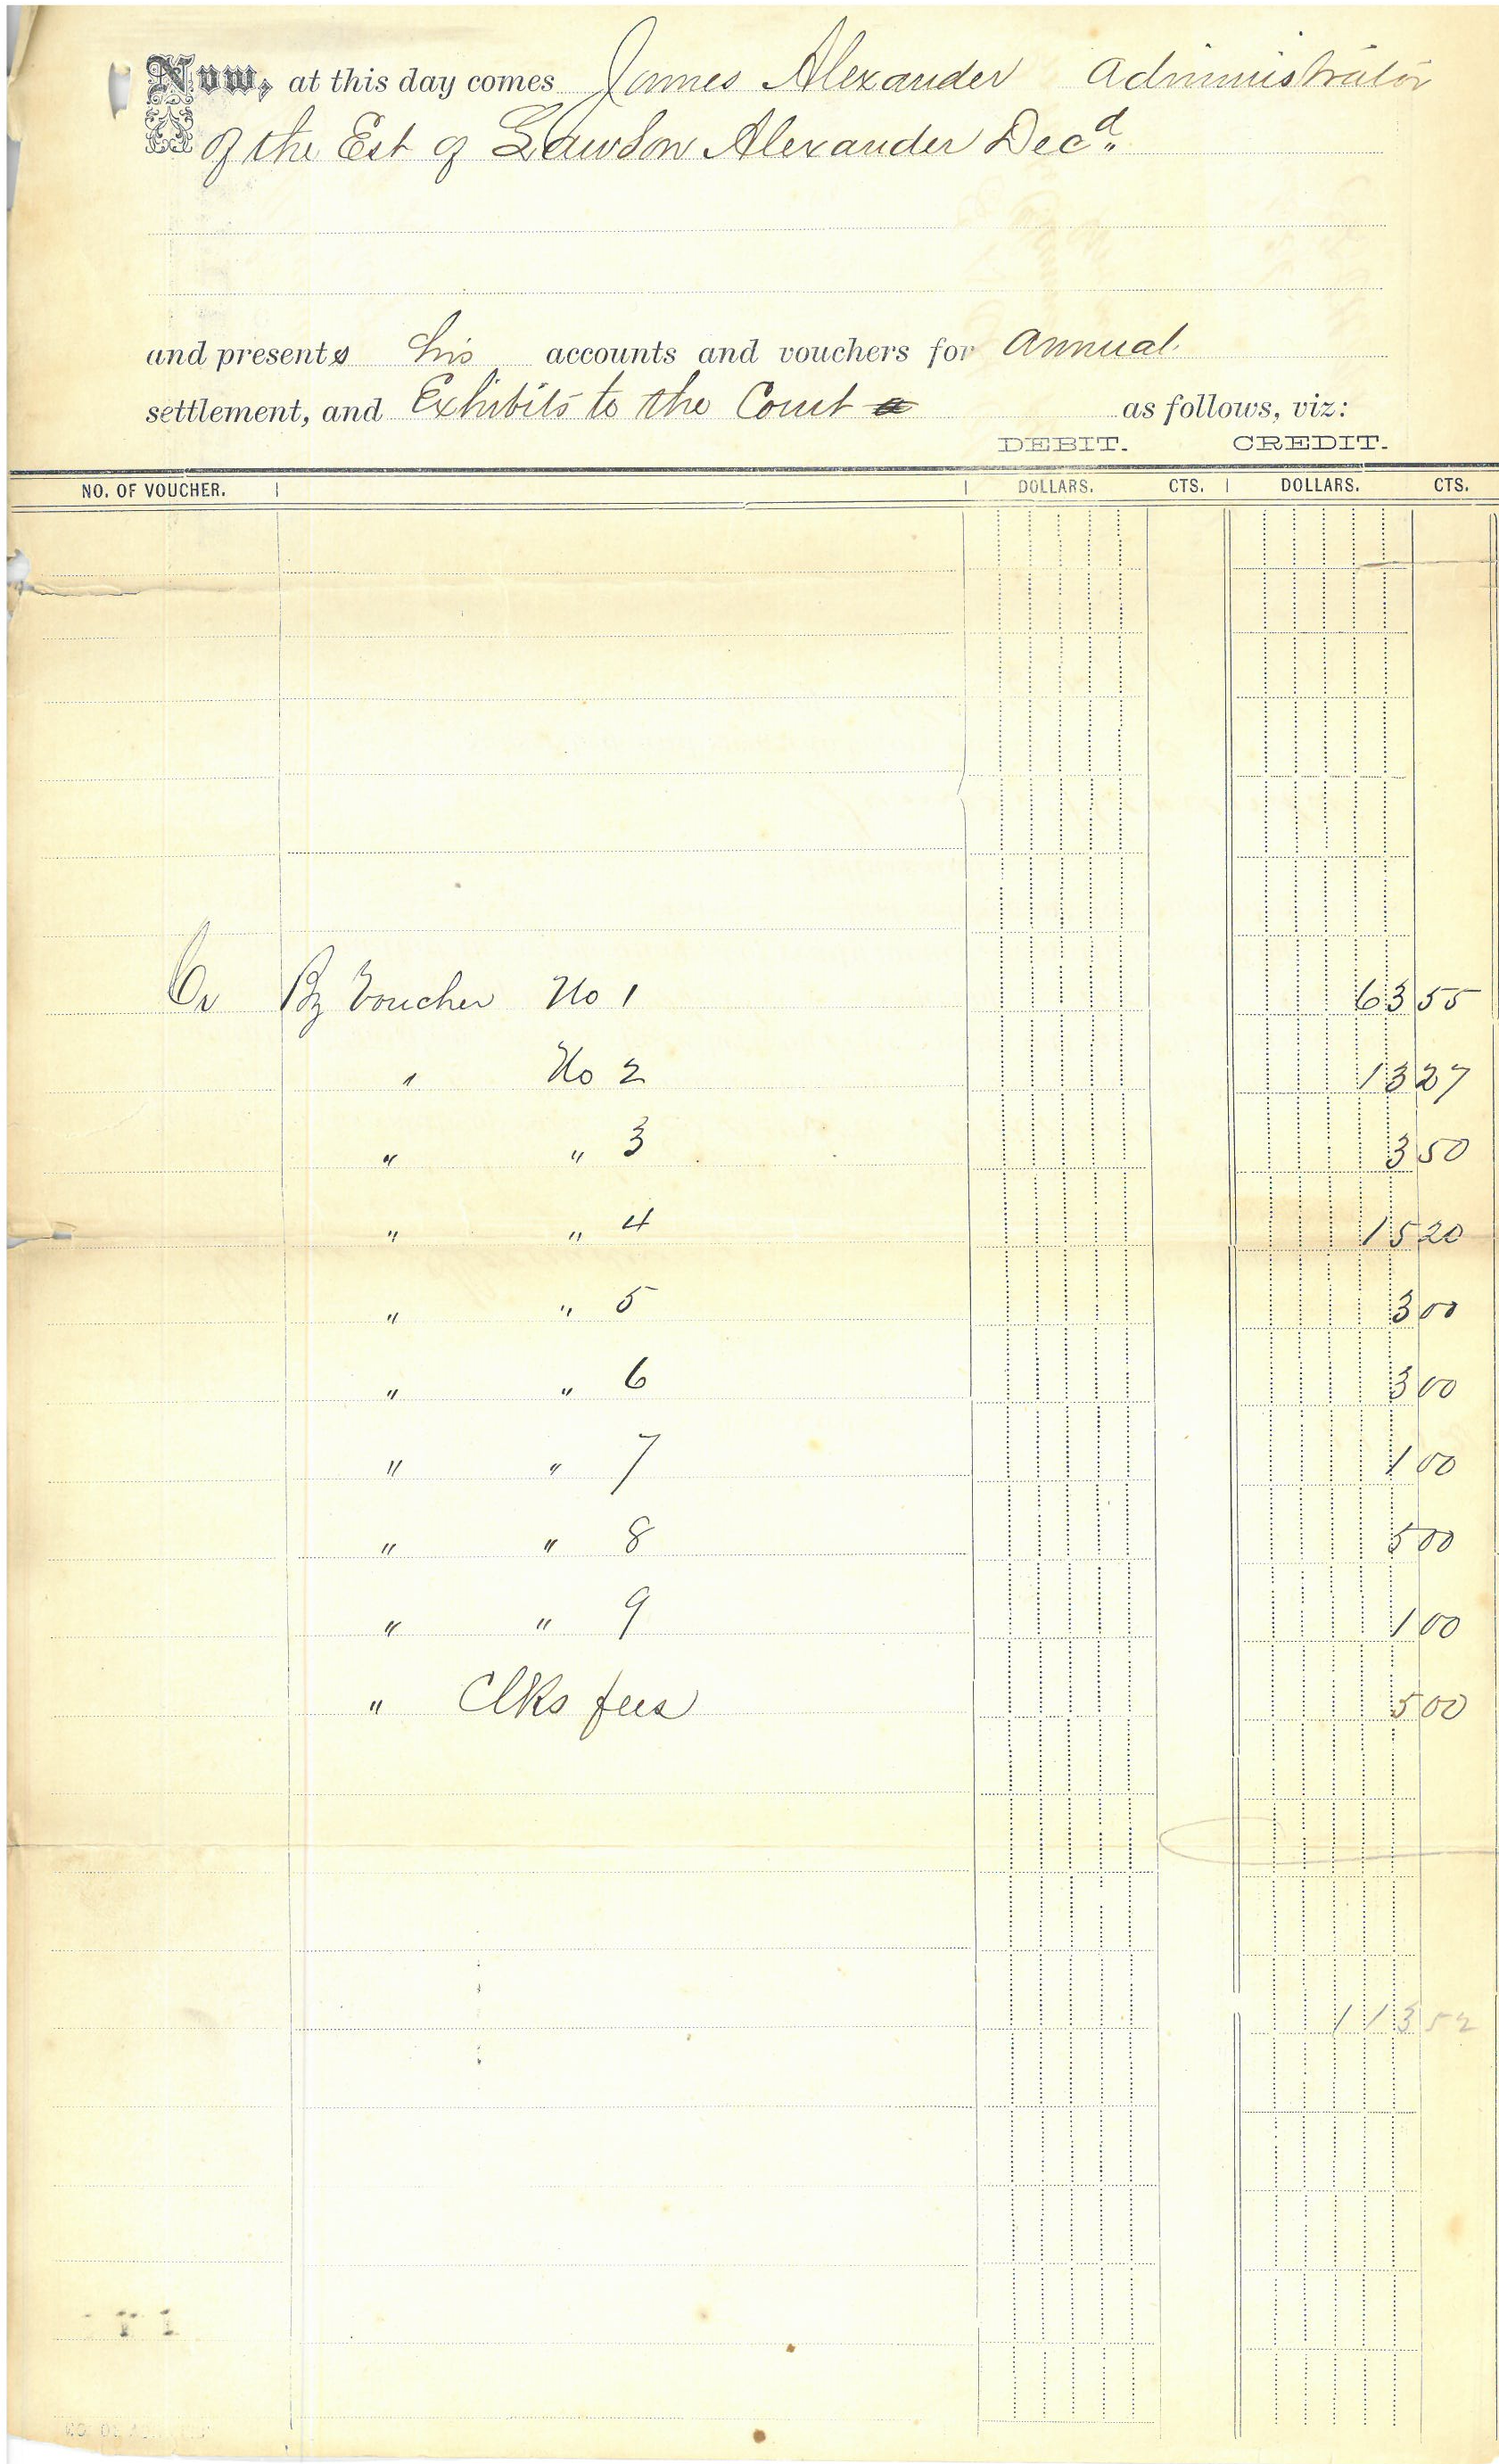 Now, at this day comes James Alexander Administrator
of the Est of Lawson Alexander Decd.
and presents his accounts and vouchers for annual
settlement, and Exhibits to the Court as follows, viz:
DEBIT. CREDIT.
NO. OF VOUCHER. DOLLARS. CTS. DOLLARS. CTS.
Cr By Voucher No 1 63 55
" No 2 13 27
" " 3 3 50
" " 4 15 20
" " 5 3 00
" " 6 3 00
" " 7 1 00
" " 8 5 00
" " 9 1 00
" Clks fees 5 00
113 52